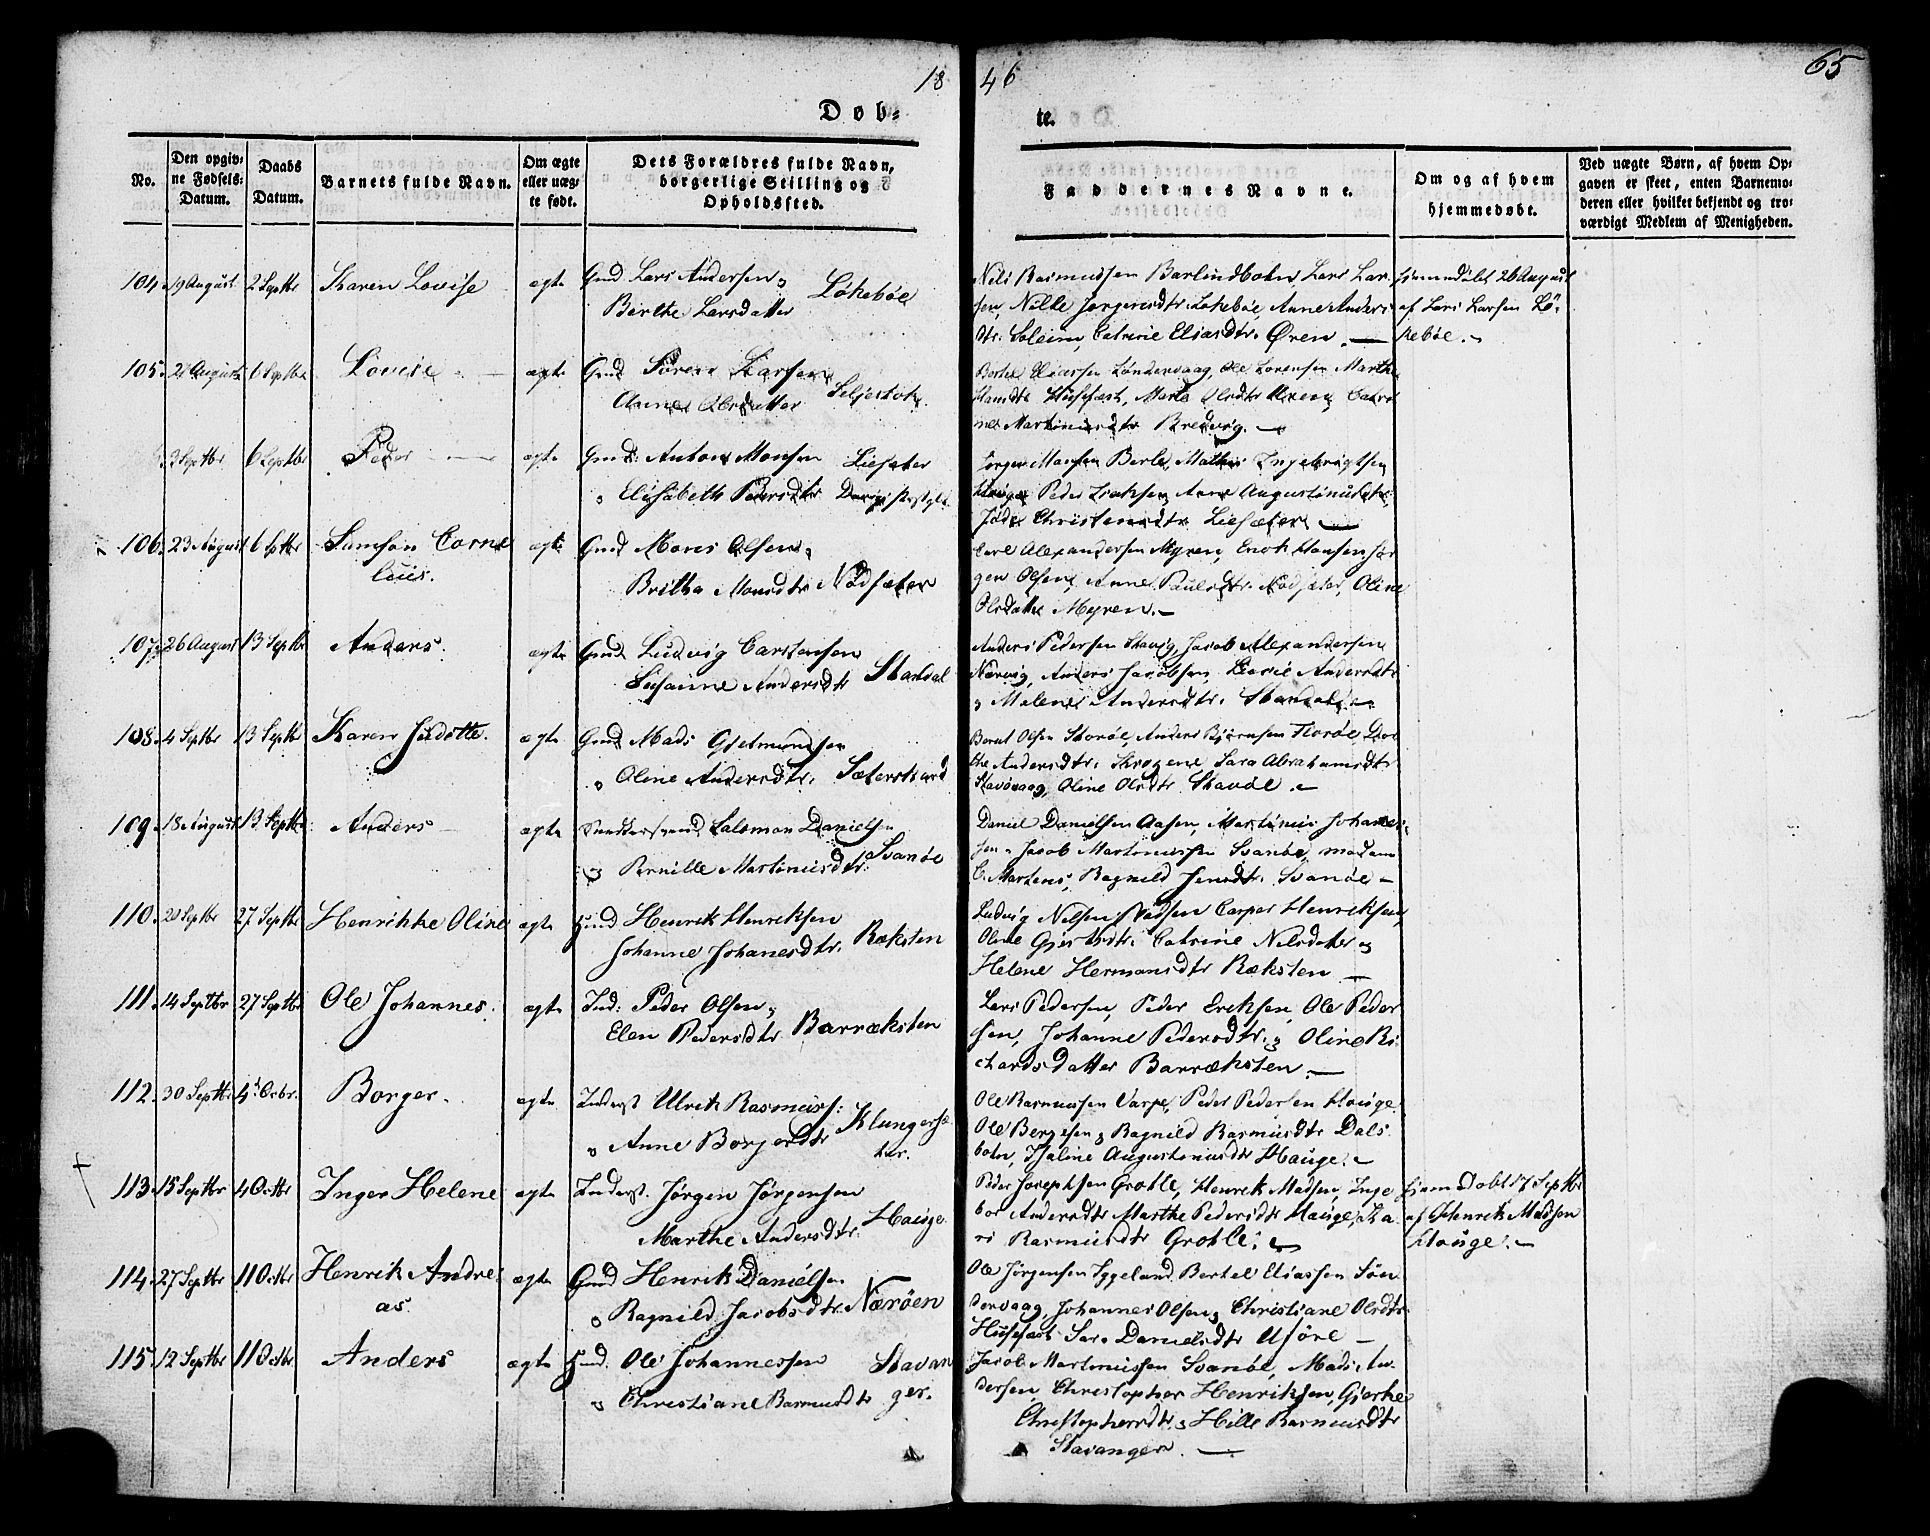 18
46
65
Døb-
te.
No.
Den opgiv-
ne Fødsels-
Datum.
Daabs
Datum.
Barnets fulde Navn.
Om ægte
eller uæg-
te født.
Dets Forældres fulde Navn,
borgerlige Stilling og
Opholdssted.
Faddernes Navne.
Om og af hvem
hjemmedøbt.
Ved uægte Børn, af hvem Op-
gaven er skeet, enten Barnemo-
deren eller hvilket bekjendt og tro-
værdigt Medlem af Menigheden.
104. 19 August 2 Septbr Karen Lovise ægte Gmd. Lars Andersen
Berthe Larsdatter Løkebøe
Nils Rasmussen Barlindbotn, Lars Lar-
sen, Nille Jørgensdtr. Løkebøe, Anne Anders
dtr. Soleim, Catrine Eliasdtr. Øren. —
hjemmedøbt 26 August
af Lars Larsen Lø-
kebøe. -
105. August 6 Septbr Lovise - ægte Gmd Søren Larsen
Anne Olsdatter Seljestok
Bertel Eliassen Søndervaag, Ole Sørensen Marthe
Hansdtr Husefæst, Marte Olsdtr Øren, Catri
ne Martinusdtr Bredvig. —
3 Septbr 6 Septbr Peder - ægte Gmd: Anton Monsen Liesæter
Elisabeth Pedersdtr
Jørgen Monsen Berle, Mathis Ingebrigtsen
Hauge Peder Isaksen, Anne Augustinusdtr.
Christensdtr Liesæter —
106. 23 August 6 Sptbr Samson Corne
lius. ægte Gmd Mons Olsen,
Britha Monsdtr Nødsæter
Carl Alexandersen Myren, Enok Hansen, Jør
gen Olsen, Anne Paulsdtr. Nødsæter, Oline
Olsdatter Myren. —
107. 26 August 13 Septbr Anders. ægte Gmd. Ludvig Carstensen
Susanne Andersdtr Standal
Anders Pedersen Stavig, Jacob Alexandersen
Nærvig, Anders Jacobsen, Andersdtr
Malene Andersdtr. Standal. —
108. 4 Septbr 13 Septbr Karen Judotte. ægte Gmd Mads Gjelmundsen
Oline Andersdtr. Sæterstrand
Bernt Olsen Storøe, Anders Bjørnsen Florøe, Dor
the Andersdtr. Skrogene Sara Abrahamsdtr
Stavøvaag, Oline Olsdtr. Stavøe. —
109. 18 August 13 Septbr Anders - ægte Salomon Danielsen
Pernille Martinusdtr. Svanøe
Daniel Danielsen Aasen, Martinus Johannes-
sen, Jacob Martinussen Svanøe, madam
C. Martens, Ragnild Jensdtr. Svanøe —
110. 20 Septbr 27 Septbr Henrikke Oline ægte Huusmd Henrik Henriksen
Johanne Johanesdtr. Ræksten
Ludvig Nilsen, Madsen Casper Henriksen,
Oline Gjertsdtr. Catrine Nilsdatter og
Helene Hermansdtr Ræksten —
111. 14 Septbr 27 Septbr Ole Johannes. ægte Ind: Peder Olsen
Elen Pedersdtr Barræksten
Lars Pedersen, Peder Eriksen, Ole Peder
sen, Johanne Pedersdtr. Oline Ri-
chardsdatter Barræksten. —
112. 30 Septbr 4 Octbr. Børger. ægte Inderst Ulrik Rasmuss:
Anne Børgersdtr Klungersæ
ter.
Ole Rasmussen Varpe, Peder Pedersen Hauge,
Ole Børgesen, Ragnild Rasmusdtr Dals
botn, Thaline Augustinusdtr Hauge. —
113. 15 Septbr 4 Octbr Inger Helene ægte Inderst. Jørgen Jørgensen
Marthe Andersdtr. Hauge
Peder Josephsen Grotle, Henrik Madsen, Inge
bor Andersdtr Marthe Pedersdtr Hauge, Ka-
ri Rasmusdtr Grotle. —
hjemdøbt 17 Septbr
af Henrik Madsen
Hauge. —
114. 27 Septbr 11 Octbr Henrik Andre
as. ægte Gmd Henrik Danielsen
Ragnild Jacobsdtr. Nærøen
Ole Jørgensen Yggeland Bertel Eliassen Søn
dervaag, Johannes Olsen, Christiane Olsdtr
Husefæst Sara Danielsdtr Usøre —
115. 12 Septbr 11 Octbr Anders ægte Huusmd. Ole Johannessen Stavan
Christiane Rasmusdtr ger.
Jacob Martinussen Svanøe, Mads An-
dersen, Christopher Henriksen, Gjerke
Christophersdtr. Hille Rasmusdtr
Stavanger. —